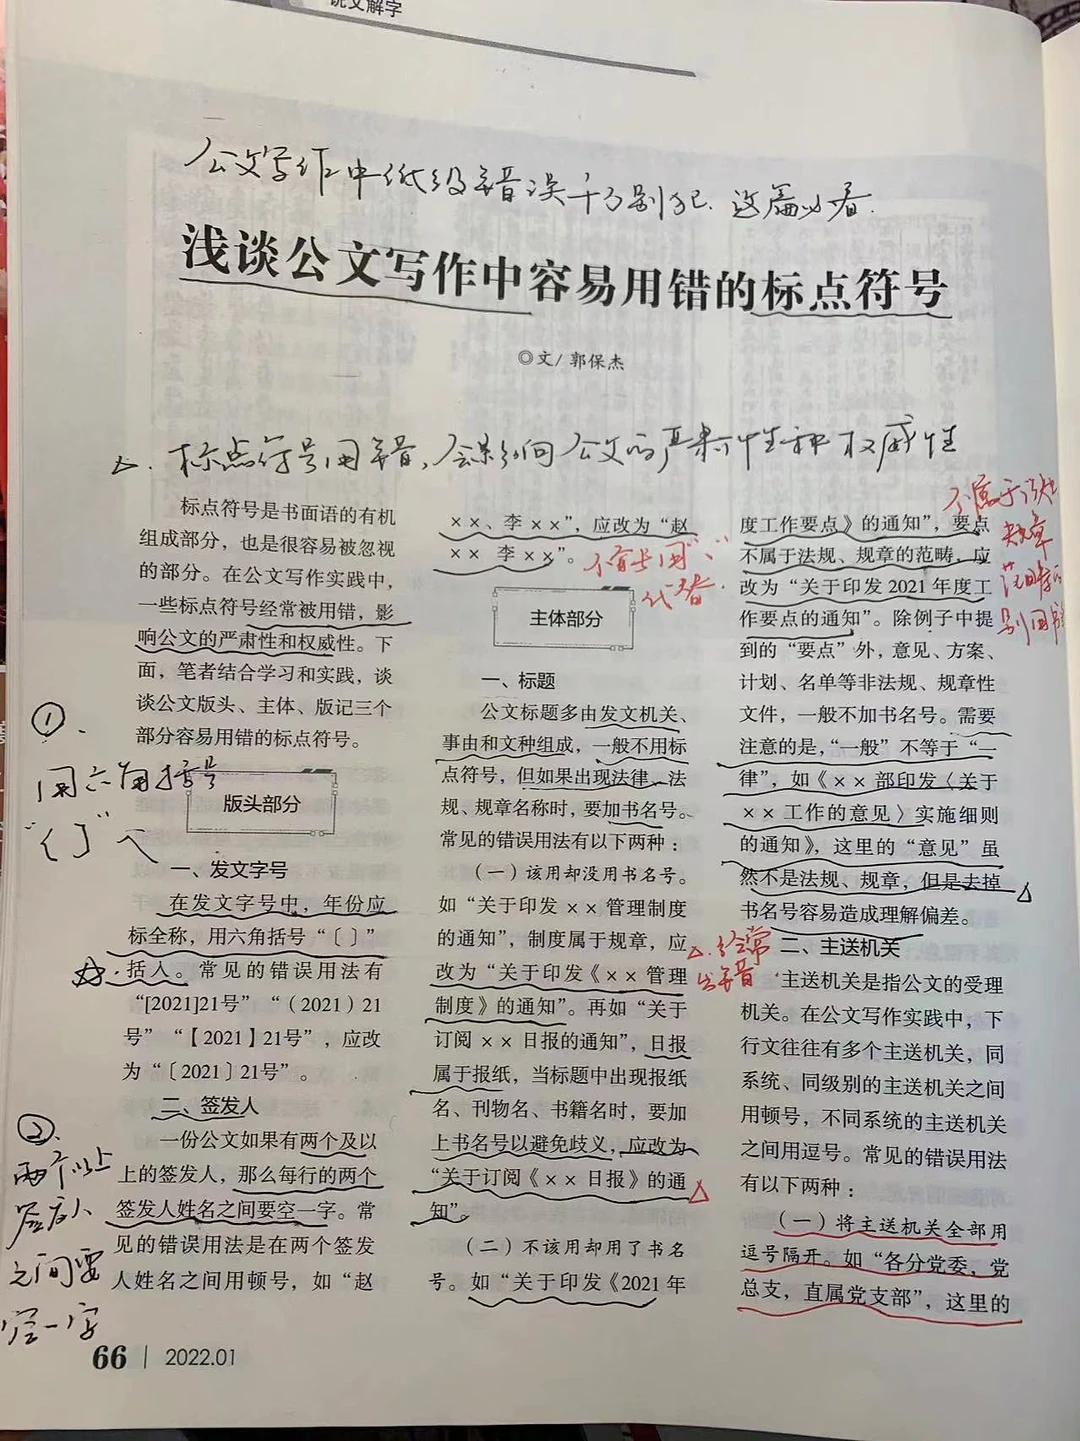 说文解字
公文写作中低级错误千万别犯.这篇必看.
浅谈公文写作中容易用错的标点符号
◎文/ 郭保杰
△.标点符号用错,会影响公文的严肃性和权威性
标点符号是书面语的有机
组成部分，也是很容易被忽视
的部分。在公文写作实践中，
一些标点符号经常被用错，影
响公文的严肃性和权威性。下
面，笔者结合学习和实践，谈
谈公文版头、主体、版记三个
部分容易用错的标点符号。
①.
用六角括号
“〔〕”入
版头部分
一、发文字号
在发文字号中，年份应
标全称，用六角括号“〔 〕”
括入。常见的错误用法有
“[2021]21号”“（2021）21
号”“【2021】21号”，应改
为“〔2021〕21号”。
二、签发人
②.
两个以上
签发人
之间要
空一字
一份公文如果有两个及以
上的签发人，那么每行的两个
签发人姓名之间要空一字。常
见的错误用法是在两个签发
人姓名之间用顿号，如“赵
××、李××”，应改为“赵
××　李××”。
不能用“、”
代替.
主体部分
一、标题
公文标题多由发文机关、
事由和文种组成，一般不用标
点符号，但如果出现法律、法
规、规章名称时，要加书名号。
常见的错误用法有以下两种：
（一）该用却没用书名号。
如“关于印发××管理制度
的通知”，制度属于规章，应
改为“关于印发《××管理
制度》的通知”。再如“关于
订阅××日报的通知”，日报
属于报纸，当标题中出现报纸
名、刊物名、书籍名时，要加
上书名号以避免歧义，应改为
“关于订阅《××日报》的通
知”。
（二）不该用却用了书名
号。如“关于印发《2021年
△.经常
出错
不属于法规
规章
范畴的
别用书
度工作要点》的通知”，要点
不属于法规、规章的范畴，应
改为“关于印发2021年度工
作要点的通知”。除例子中提
到的“要点”外，意见、方案、
计划、名单等非法规、规章性
文件，一般不加书名号。需要
注意的是，“一般”不等于“一
律”，如《××部印发〈关于
××工作的意见〉实施细则
的通知》，这里的“意见”虽
然不是法规、规章，但是去掉
书名号容易造成理解偏差。
二、主送机关
主送机关是指公文的受理
机关。在公文写作实践中，下
行文往往有多个主送机关，同
系统、同级别的主送机关之间
用顿号，不同系统的主送机关
之间用逗号。常见的错误用法
有以下两种：
（一）将主送机关全部用
逗号隔开。如“各分党委，党
总支，直属党支部”，这里的
66 | 2022.01